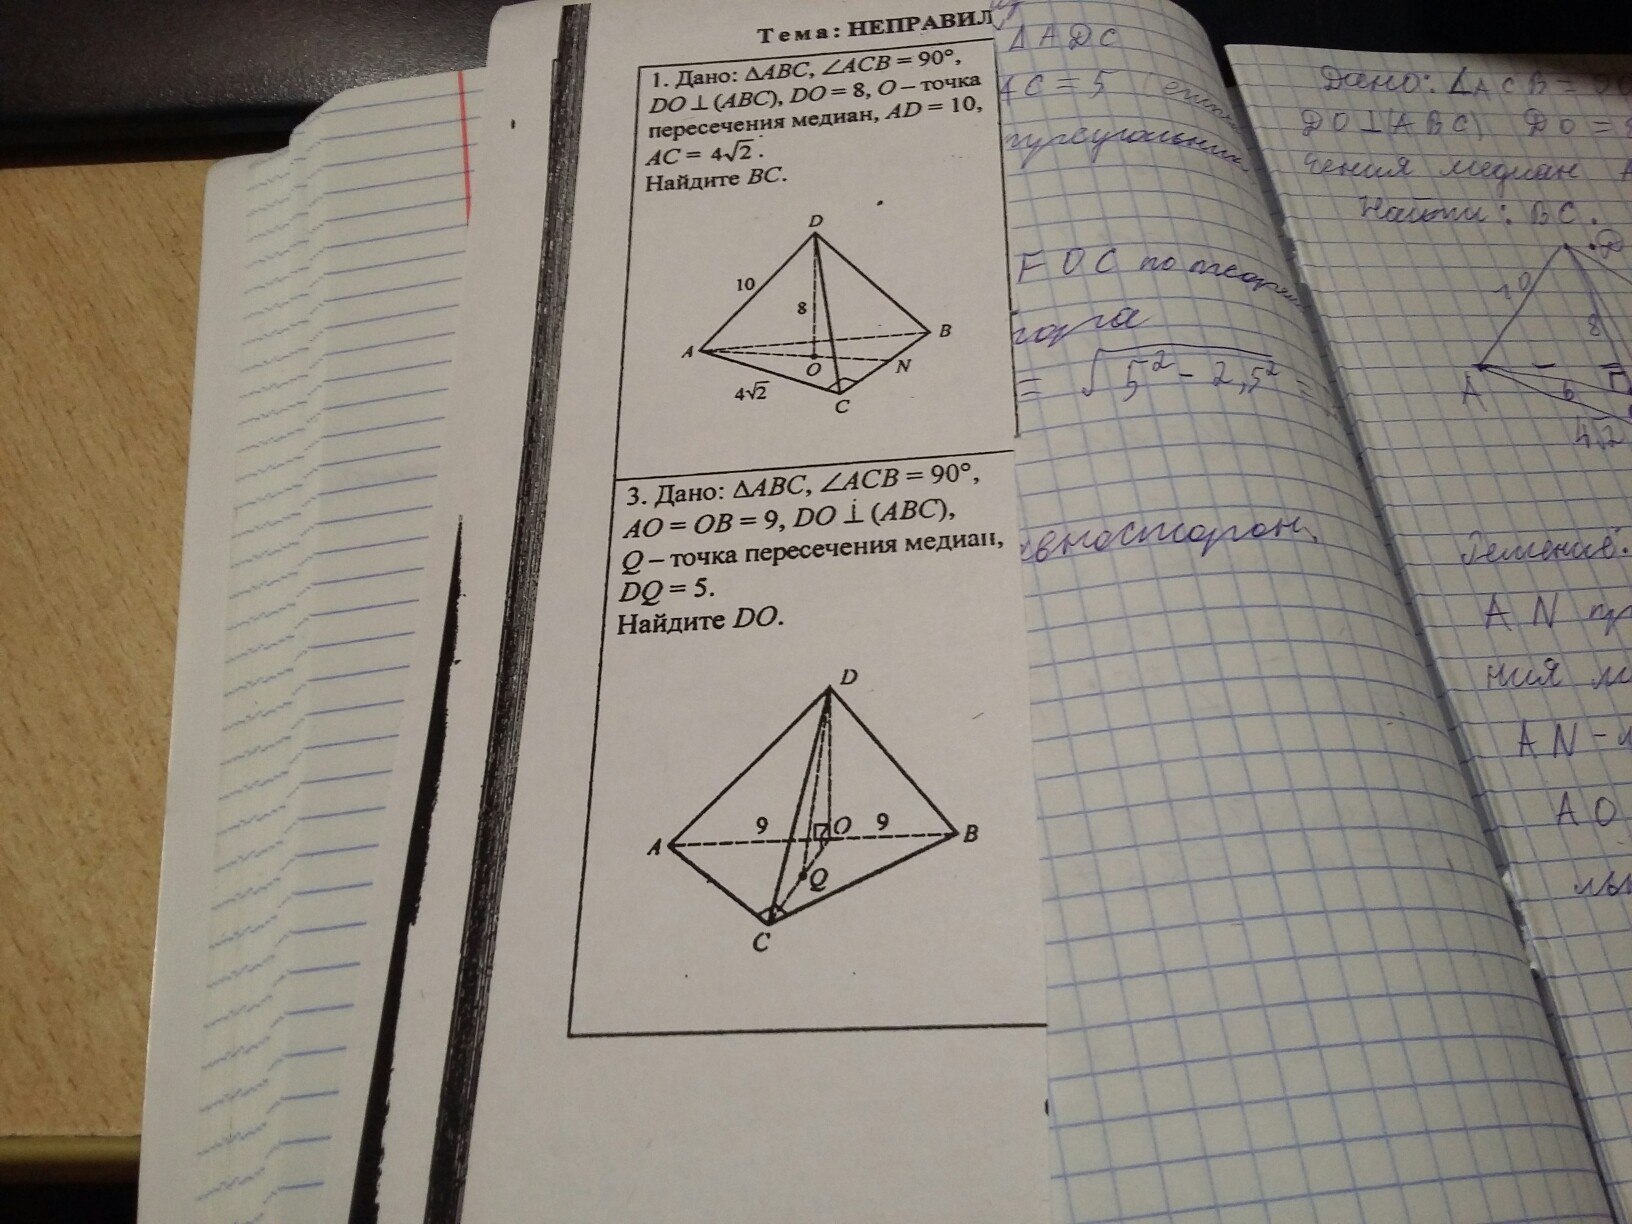 Тема: НЕПРАВИЛ
1. Дано: ΔABC, ∠ACB = 90°,
DO ⊥ (ABC), DO = 8, O – точка
пересечения медиан, AD = 10,
AC = 4√2.
Найдите BC.
D
10
8
A
B
O
N
4√2
C
3. Дано: ΔABC, ∠ACB = 90°,
AO = OB = 9, DO ⊥ (ABC),
Q – точка пересечения медиан,
DQ = 5.
Найдите DO.
D
9
O
9
A
B
Q
C
ΔADC
C = 5
FOC по
= √5² - 2,5² =
Дано: ΔACB =
DO⊥(ABC) DO =
чения медиан A
Найти: BC.
D
10
8
A
6
4√2
Решение:
AN пр
ния м
AN -
AO